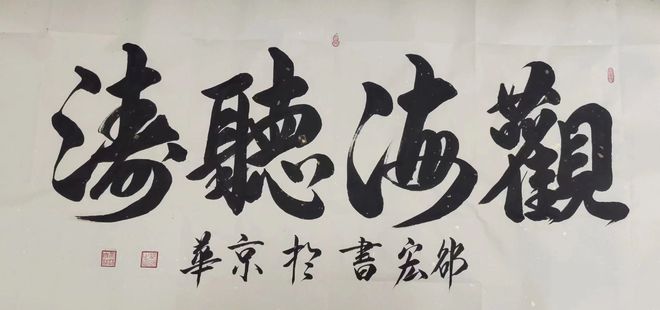 觀海聽濤
邠宏書於京華